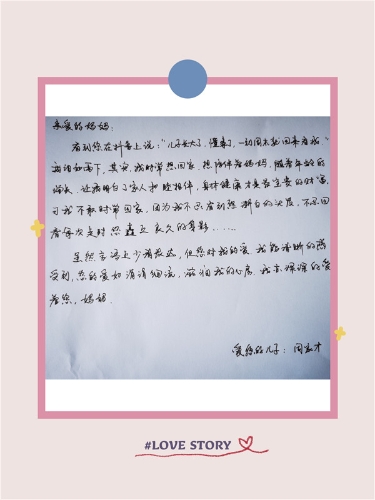 亲爱的妈妈:
看到您在抖音上说:"儿子长大了,懂事了,一到周末就回来看我。"
泪如雨下,其实,我时常想回家,想陪伴着妈妈,随着年龄的
增长,让我明白了家人和陪相伴,身体健康才是最宝贵的财富,
可我不敢时常回家,因为我不忍看到您斑白的头发,不忍回
看每次走时您矗立良久的身影......
虽然言语上少有表达,但您对我的爱我能清晰的感
受到,您的爱如涓涓细流,滋润我的心房。我亦深深的爱
着您,妈妈.
爱您的儿子:周
#LOVE STORY